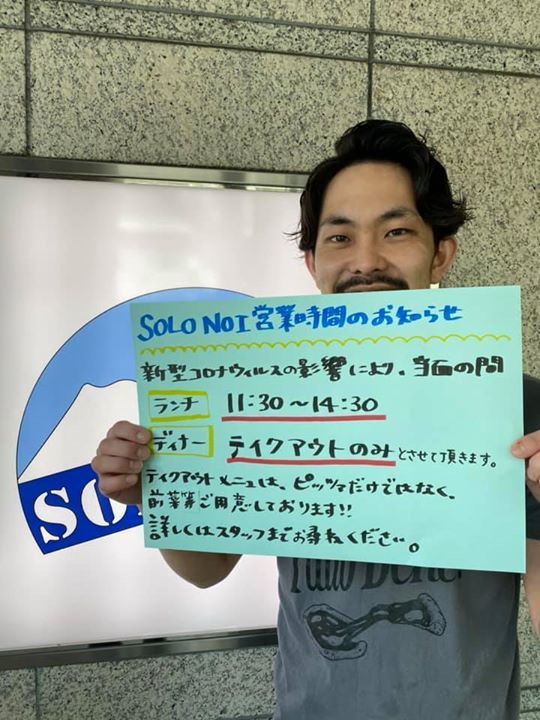 SOLO NOI営業時間のお知らせ
新型コロナウィルスの影響により、当面の間
ランチ 11:30〜14:30
ディナー テイクアウトのみとさせて頂きます。
テイクアウトメニューは、ピッツァだけではなく、
前菜等ご用意しております!!
詳しくはスタッフまでお尋ねください。
SO